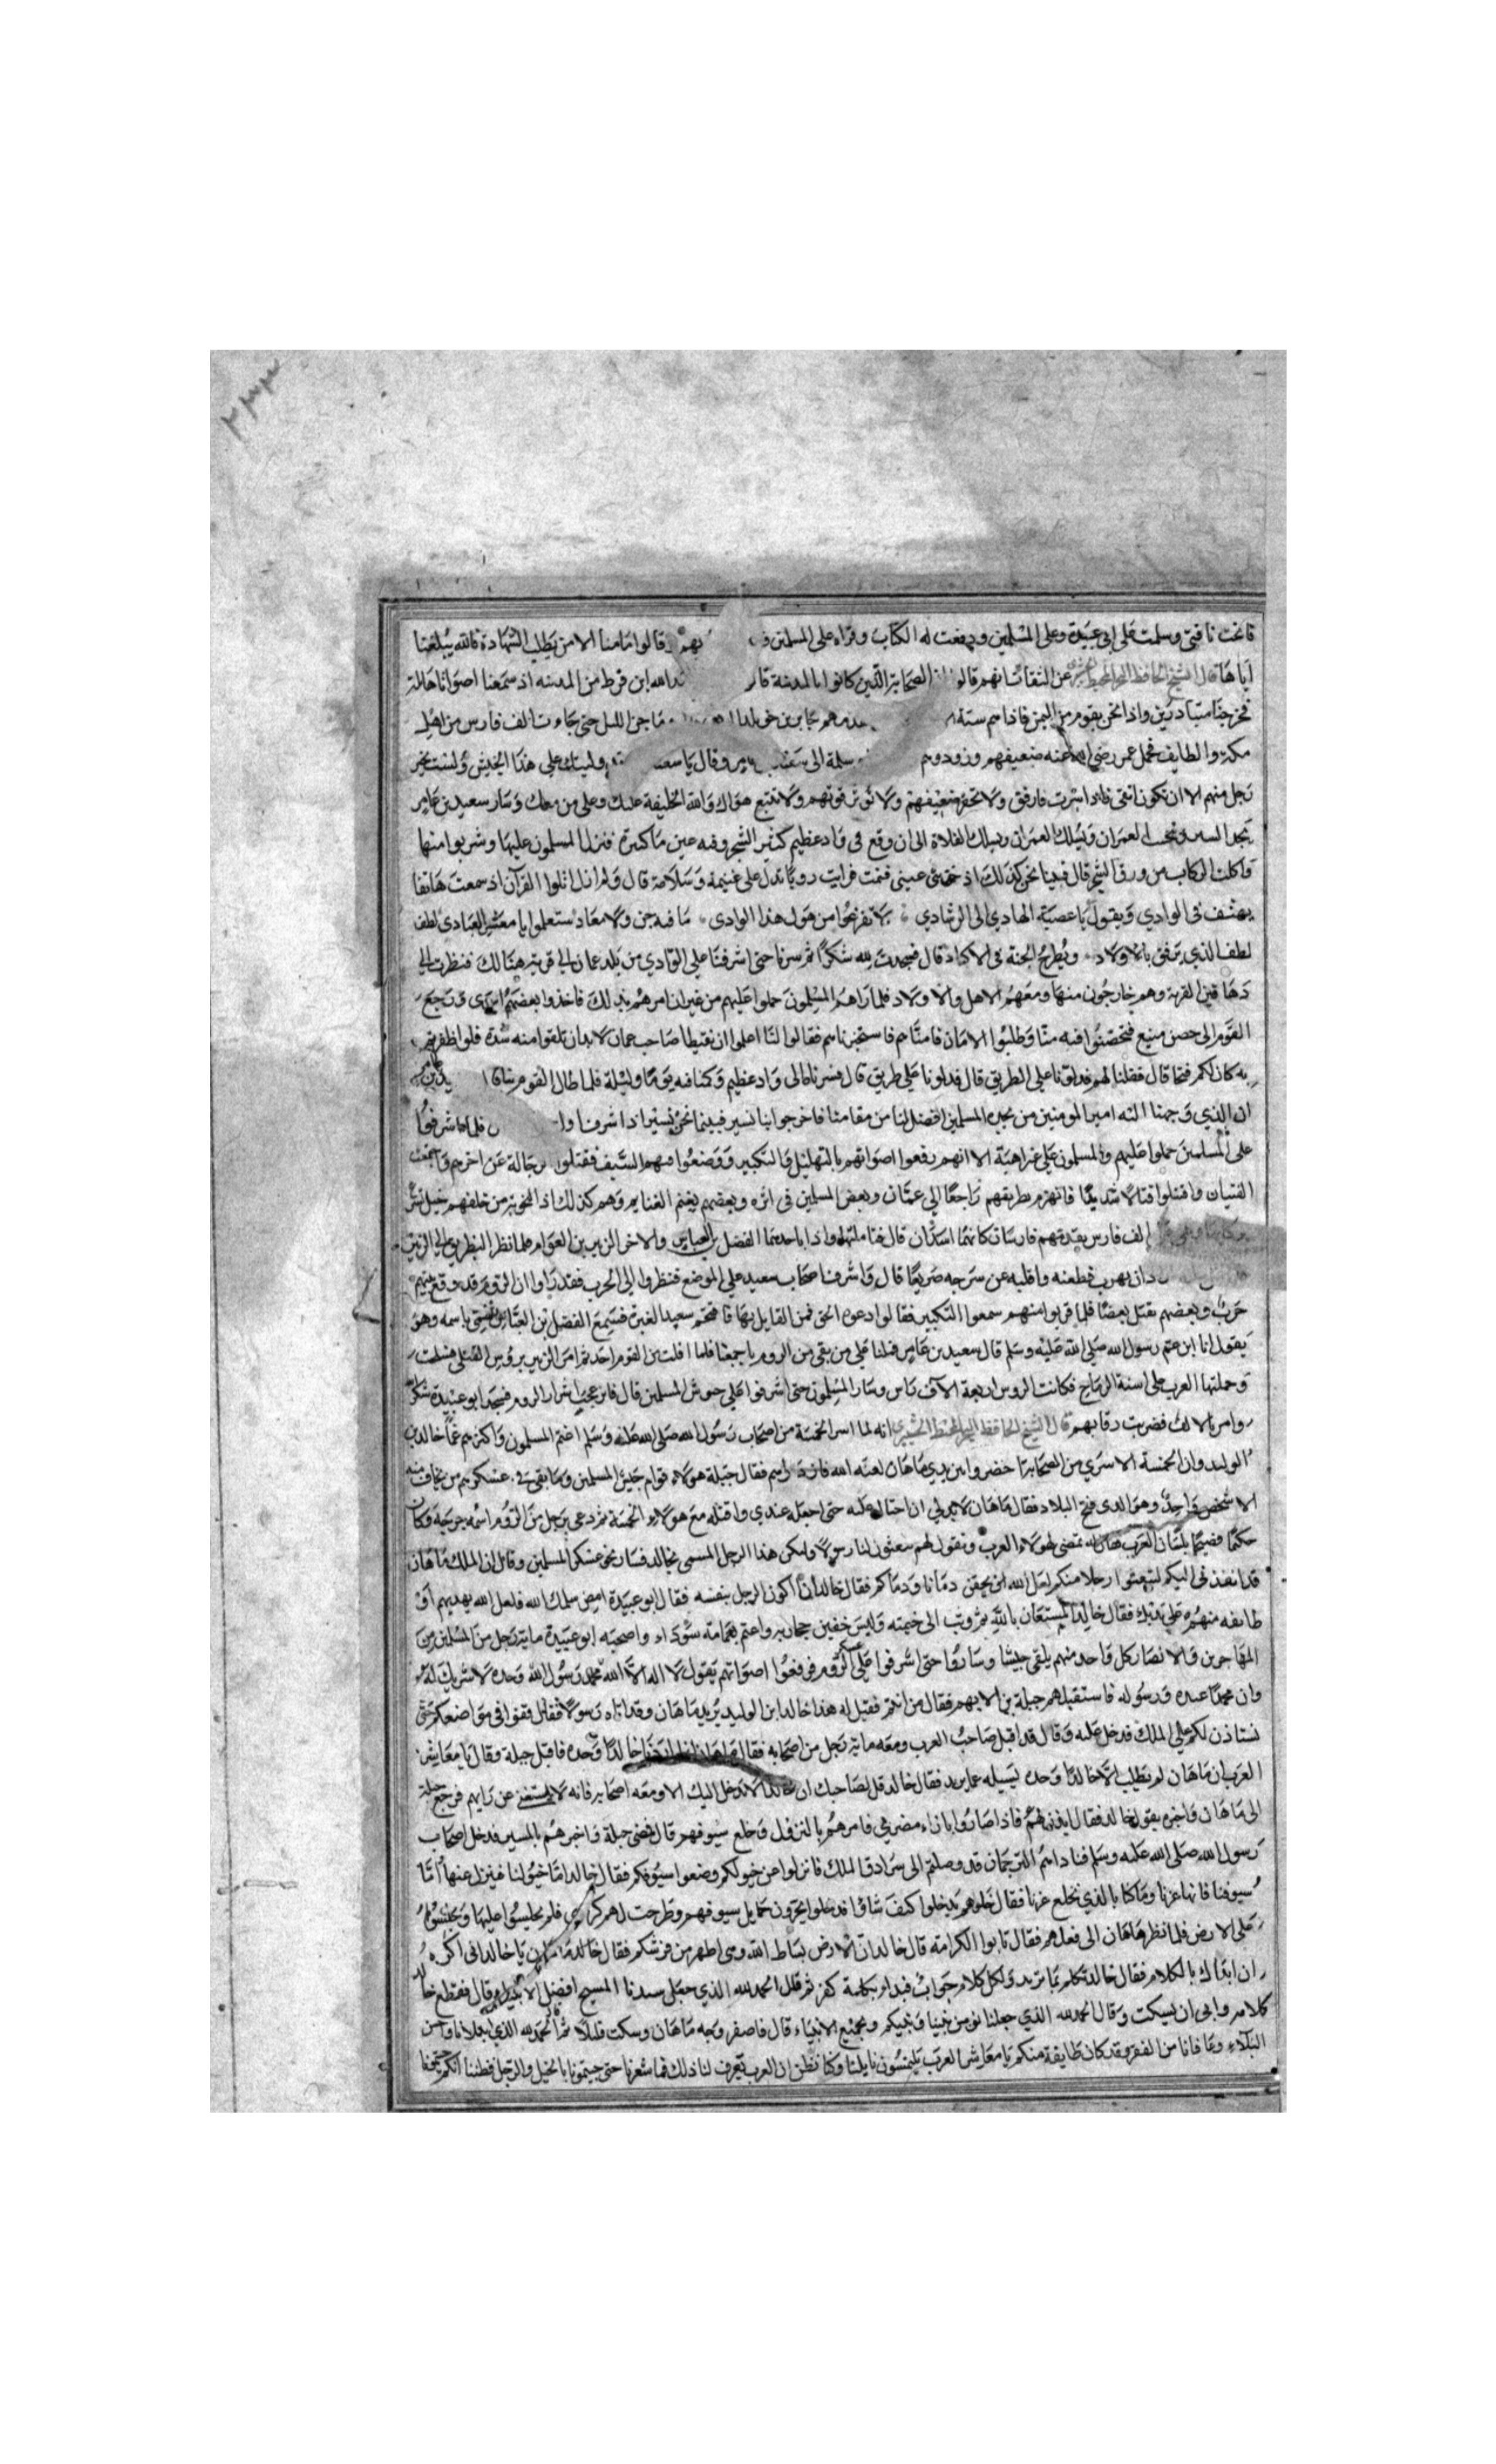 فانخت ناقتي وسلمت على ابي عبيدة وعلى المسلمين ودفعت له الكتاب وقراه على المسلمين وقالوا ما منا الا من يطلب الشهادة فالله يبلغنا
اياها قال الشيخ الحافظ عن الثقات انهم قالوا الصحابة الذين كانوا بالمدينة ابن قرط من المدينه اذ سمعنا اصواتا هائلة
فخرجنا متبادرين واذا نحن بقوم من اليمن فاذا هم ستة جابر بن خويلد ما جن الليل حتى جاءت الف فارس من اهل
مكة والطايف فحمل عمر رضي الله عنه ضعيفهم وزودهم وقال يا سعيد وليتك على هذا الجيش ولست بخير
رجل منهم الا ان تكون اتقى فاذا سرت فارفق ولا تحقر ضعيفهم ولا تؤثر قويهم ولا تتبع هواك والله الخليفة عليك وعلى من معك وسار سعيد بن عامر
العمران ويسلك العمران ويسلك الفلاة الى ان وقع في واد عظيم كثير الشجر وفيه عين ماء كبيرة فنزل المسلمون عليها وشربوا منها
واكلت الركاب من ورق الشجر قال فبينا نحن كذلك اذ غمضت عيني فنمت فرايت رويا تدل على غنيمة وسلامة قال ولم ازل اتلوا القرآن اذ سمعت هاتفا
يهتف في الوادي ويقول يا عصبة الهادي الى الرشادي لا تفزعوا من هول هذا الوادي ما فيه جن ولا معاد ستعلموا يا معشر العبادي لطف
لطف الذي يرفق بالاولاد ويطرح الجنة في الاكباد قال فسجدت لله شكرا ثم سرنا حتى اشرفنا على الوادي من بلد عمان الى قرية هنالك فنظرت الى
دهاقين القرية وهم خارجون منها ومعهم الاهل والاولاد فلما راهم المسلمون حملوا عليهم من غير ان امرهم بذلك فاخذوا بعضهم اسارى ورجع
القوم الى حصن منيع فتحصنوا فيه منا وطلبوا الامان فامناهم فاستخبرناهم فقالوا لنا اعلموا ان نقيطا صاحب عمان لابد ان تلقوا منه شدة فلو اظفرتم
به كان لكم فتحا قال فقلنا لهم فدلونا على الطريق قال فدلونا على طريق قال فسرنا الى واد عظيم وكمنا فيه يوما وليلة فلما طال القوم
ان الذي وجهنا اليه امير المومنين من نجدة المسلمين افضل لنا من مقامنا فاخرجوا بنا نسير فبينما نحن نسير اذ اشرفنا فلما اشرفوا
على المسلمين حملوا عليهم والمسلمون على غراهية الا انهم رفعوا اصواتهم بالتهليل والتكبير ووضعوا فيهم السيف فقتلوا رجالة عن اخرهم والتقت
الفتيان واقتتلوا قتالا شديدا فانهزم بطريقهم راجعا الى عمان وبعض المسلمين في اثره وبعضهم يغنم الغنايم وهم كذلك اذ
الف فارس يقدمهم فارسان كانهما اسدان قال فتاملتهما واذا باحدهما الفضل بن العباس والاخر الزبير بن العوام فلما نظر البطريق الى الزبير
ان يهرب فطعنه واقلبه عن سرجه صريعا قال واشرفنا اصحاب سعيد على الموضع فنظروا الى الحرب فقد راوا ان الروم قد وقع بينهم
حرب وبعضهم يقتل بعضا فلما قربوا منهم سمعوا التكبير فقالوا دعوه الحق فمن القايل بها فاقتحم سعيد الغبرة فسمع الفضل بن العباس باسمه وهو
يقول انا ابن عم رسول الله صلى الله عليه وسلم قال سعيد بن عامر فملنا على من بقي من الروم باجمعنا فلما افلت من القوم احد ثم امر الزبير بروس القتلى فسلخت
وحملتها العرب على اسنة الرماح فكانت الروس اربعة الآف راس وسار المسلمون حتى اشرفوا على جيوش المسلمين قال فانزعج اشرار الروم فسجد ابو عبيدة شكرا
وامر بالالف فضربت رقابهم قال الشيخ الحافظ انه لما اسر الخمسة من اصحاب رسول الله صلى الله عليه وسلم اغتم المسلمون واكثرهم غما خالد بن
الوليد وان الخمسة الاسرى من الصحابة حضروا بين يدي ماهان لعنه الله فازدراهم فقال جبلة هولاء قوام جيش المسلمين وما بقي في عسكرهم من يخاف منه
الا شخص واحد وهو الذي فتح البلاد فقال ماهان لابد لي ان احتال عليه حتى اجعله عندي واقتله مع هولاء الخمسة ثم دعى برجل من الروم اسمه جرجه وكان
حكيما فصيحا بلسان العرب فقال له تمضي لهولاء العرب وتقول لهم يبعثون لنا رسولا وليكن هذا الرجل المسمى بخالد فسار نحو عسكر المسلمين وقال ان الملك ماهان
قد انفذني اليكم لتبعثوا رجلا منكم لعل الله ان يحقن دمانا ودماكم فقال خالد انا اكون الرجل بنفسه فقال ابو عبيدة امض سلمك الله فلعل الله يهديهم او
طايفه منهم على يديك فقال خالد المستعان بالله ثم وثب الى خيمته ولبس خفين حجازيه واعتم بعمامة سوداء واصحبه ابو عبيدة ماية رجل من المسلمين من
المهاجرين والانصار كل واحد منهم يلقي جيشا وساروا حتى اشرفوا على عسكر الروم فرفعوا اصواتهم يقول لا اله الا الله محمد رسول الله وحده لا شريك له
وان محمدا عبده ورسوله فاستقبلهم جبلة بن الايهم فقال من انتم فقيل له هذا خالد ابن الوليد يريد ماهان وقد اتاه رسولا فقال قفوا في مواضعكم حتى
نستاذن لكم على الملك فدخل عليه وقال قد اقبل صاحب العرب ومعه ماية رجل من اصحابه فقال ماهان خالدا وحده فاقبل جبلة وقال يا معاشر
العرب ان ماهان لم يطلب الا خالدا وحده ليسيله عما يريد فقال خالد قل لصاحبك ان خالدا لا يدخل اليك الا ومعه اصحابه فانه لا يستغني عن رايهم فرجع جبلة
الى ماهان واخبره بقول خالد فقال ايذن لهم فاذا صاروا بازاء مضربي فامرهم بالنزول وخلع سيوفهم قال فمضى جبلة واخبرهم بالمسير فدخل اصحاب
رسول الله صلى الله عليه وسلم فناداهم الترجمان قد وصلتم الى سرادق الملك فانزلوا عن خيولكم وضعوا سيوفكم فقال خالد اما خيولنا فننزل عنها واما
سيوفنا فانها عزنا وما كنا بالذي نخلع عزنا فقال خلوهم يدخلوا كيف شاؤا فدخلوا يجرون حمايل سيوفهم وطرحت لهم كراسي فلم يجلسوا عليها وجلسوا
على الارض فلما نظر ماهان الى فعلهم فقال تابوا الكرامة قال خالد ان الارض بساط الله وهي اطهر من فرشكم فقال ماهان يا خالد اني اكره
ان ابداك بالكلام فقال خالد تكلم بما تريد ولكل كلام جواب فبدا بكلمة كفر ثم قال الحمد لله الذي جعل سيدنا المسيح افضل الانبياء قال فقطع خالد
كلامه وابى ان يسكت وقال الحمد لله الذي جعلنا نومن بنبينا ونبيكم وبجميع الانبياء قال فاصفر وجه ماهان وسكت قليلا ثم قال الحمد لله الذي
البلاء وعافانا من الفقر وقد كان طايفة منكم يا معاشر العرب يلتمسون نايلنا وكنا نظن ان العرب تعرف لنا ذلك فما شعرنا حتى جيتمونا بالخيل والرجل فظننا انكم جيتمونا